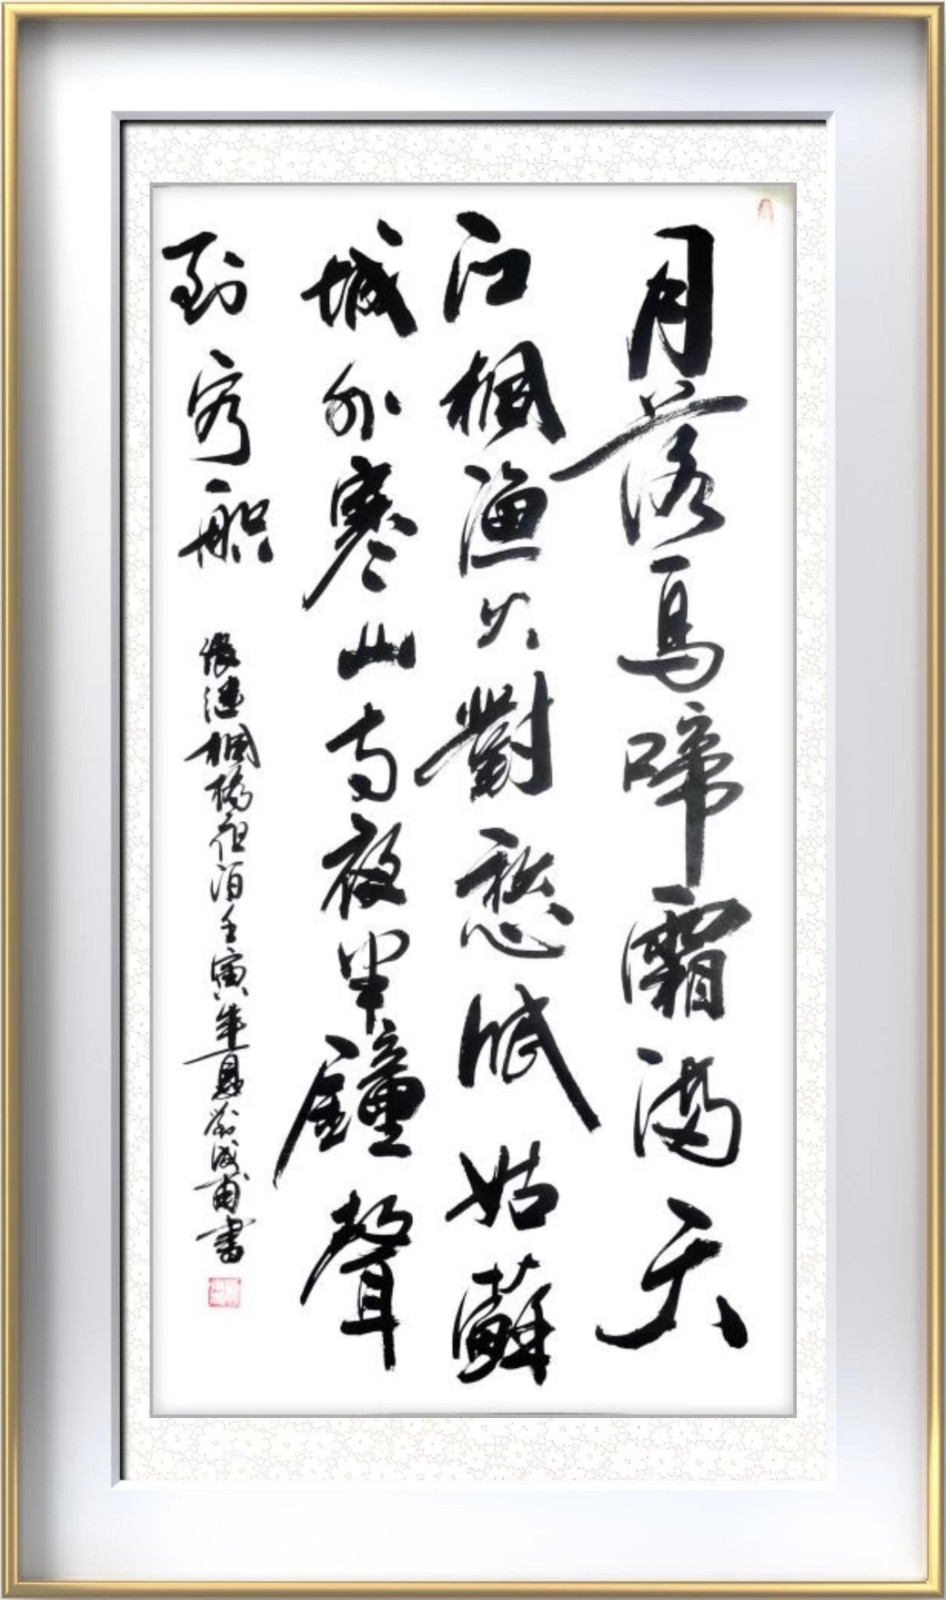 月落烏啼霜滿天
江楓漁火對愁眠姑蘇
城外寒山寺夜半鐘聲
到客船
張繼楓橋夜泊壬寅年夏 甫書